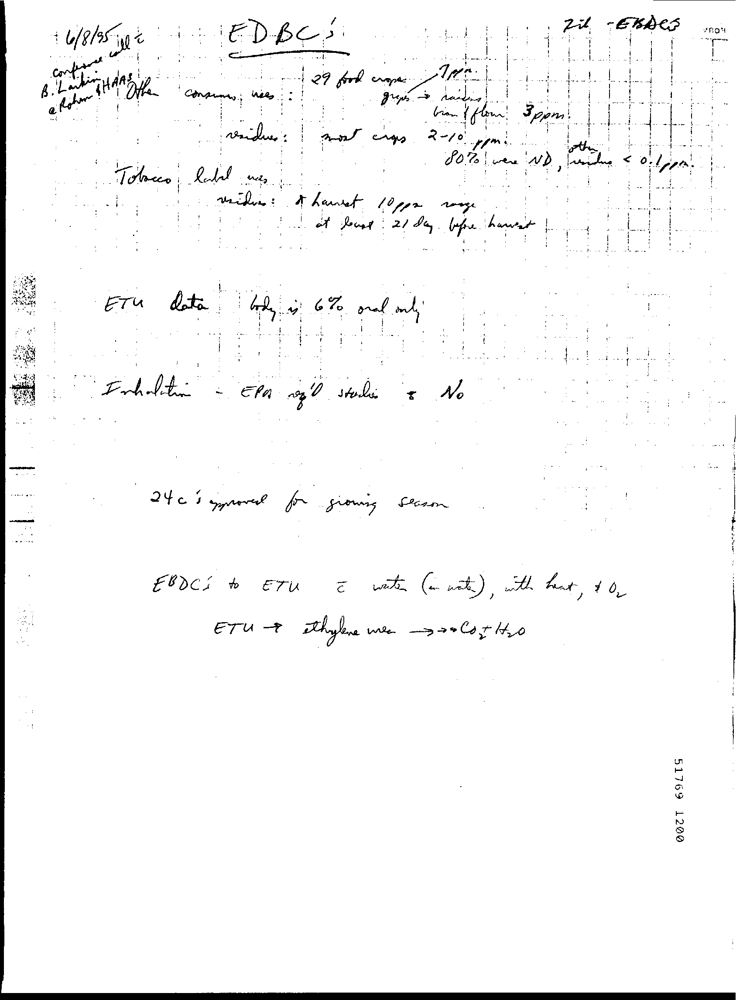 6/8/95
conference call c̄
B. Larkin
@ Rohm & HAAS
EDBC's
Zil - EBDCS
Other consumer uses : 29 food crops
7 ppm
grapes → raisins
bran & flour 3 ppm
residues: most crops 2-10 ppm.
80% were ND, other residue < 0.1 ppm.
Tobacco label uses
residues: @ harvest 10 ppm range
at least 21 day before harvest
ETU data body is 6% oral only
Inhalation - EPA req'd studies : No
24c's approved for growing season
EBDC's to ETU c̄ water (in water), with heat, & O2
ETU → ethylene urea →→→ CO2 + H2O
51769 1200